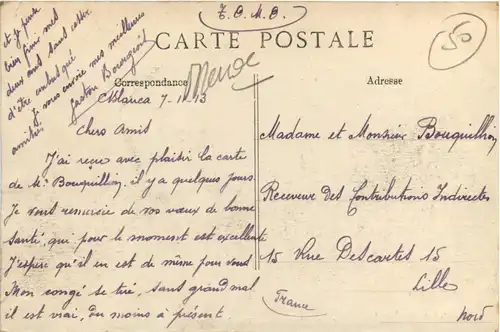 T.C.M.B.
50
CARTE POSTALE
Correspondance
Adresse
Cblanca 7. 11. 13
Chers Amis
J'ai reçue avec plaisir la carte
de Mr Bouquillion, il y a quelques jours.
Je vous remercie de vos vœux de bonne
santé, qui pour le moment est excellente
J'espère qu'il en est de même pour vous
Mon congé se tire, sans grand mal
il est vrai, du moins à présent.
et j'y pense
bien fini mes
deux ans sans cette
d'être embusqué
Je vous envoie mes meilleures
amitiés
Gaston
Madame et Monsieur Bouquillion
Receveur des Contributions Indirectes
15 Rue Descartes 15
Lille
Nord
France